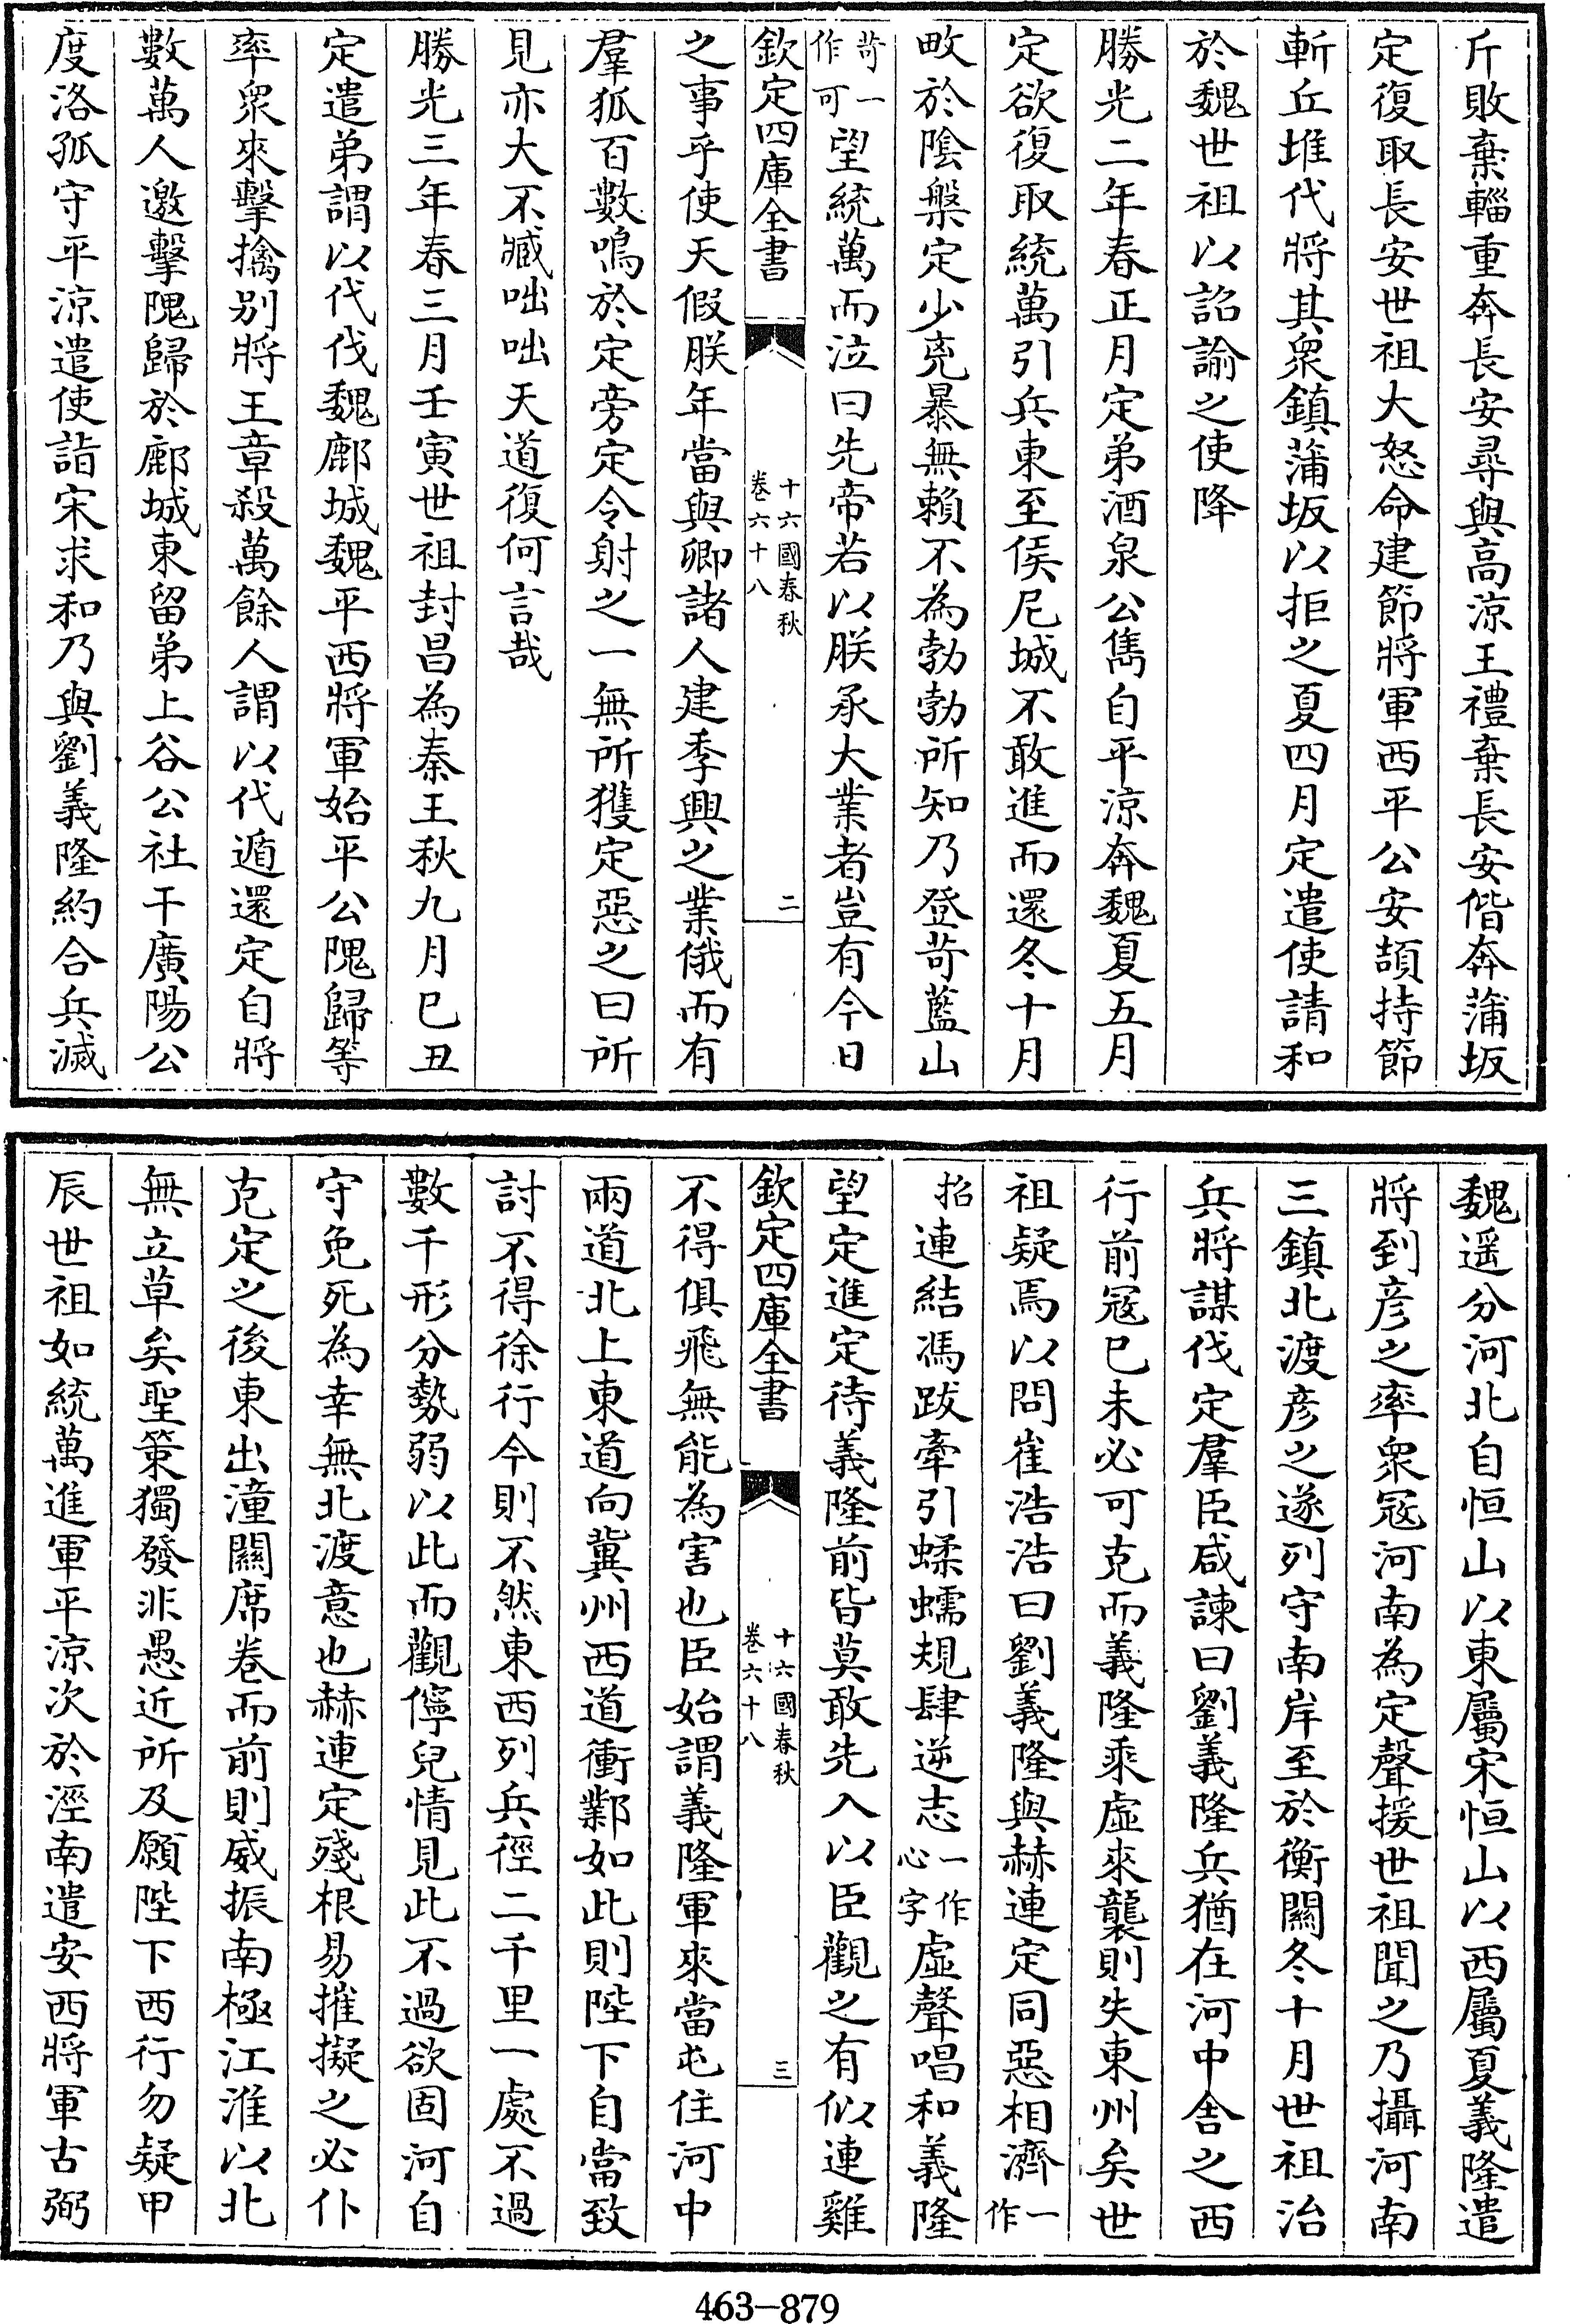 斤敗棄輜重奔長安尋與高涼王禮棄長安偕奔蒲坂
定復取長安世祖大怒命建節將軍西平公安頡持節
斬丘堆代將其衆鎮蒲坂以拒之夏四月定遣使請和
於魏世祖以詔諭之使降
勝光二年春正月定弟酒泉公雋自平涼奔魏夏五月
定欲復取統萬引兵東至侯尼城不敢進而還冬十月
畋於陰槃定少兇暴無賴不為勃勃所知乃登苛藍山
苛一作可望統萬而泣曰先帝若以朕承大業者豈有今日
欽定四庫全書
十六國春秋
卷六十八
二
之事乎使天假朕年當與卿諸人建季興之業俄而有
羣狐百數鳴於定旁定令射之一無所獲定惡之曰所
見亦大不臧咄咄天道復何言哉
勝光三年春三月壬寅世祖封昌為秦王秋九月巳丑
定遣弟謂以代伐魏鄜城魏平西將軍始平公隗歸等
率衆來擊擒别將王章殺萬餘人謂以代遁還定自將
數萬人邀擊隗歸於鄜城東留弟上谷公社干廣陽公
度洛孤守平涼遣使詣宋求和乃與劉義隆約合兵滅
魏遥分河北自恒山以東屬宋恒山以西屬夏義隆遣
將到彦之率衆冦河南為定聲援世祖聞之乃攝河南
三鎮北渡彦之遂列守南岸至於衡關冬十月世祖治
兵將謀伐定羣臣咸諫曰劉義隆兵猶在河中舍之西
行前冦巳未必可克而義隆乘虛來襲則失東州矣世
祖疑焉以問崔浩浩曰劉義隆與赫連定同惡相濟一作
招連結馮跋牽引蠕蠕規肆逆志一作心字作虛聲唱和義隆
望定進定待義隆前皆莫敢先入以臣觀之有似連雞
欽定四庫全書
十六國春秋
卷六十八
三
不得俱飛無能為害也臣始謂義隆軍來當屯住河中
兩道北上東道向冀州西道衝鄴如此則陛下自當致
討不得徐行今則不然東西列兵徑二千里一處不過
數千形分勢弱以此而觀儜兒情見此不過欲固河自
守免死為幸無北渡意也赫連定殘根易摧擬之必仆
克定之後東出潼關席卷而前則威振南極江淮以北
無立草矣聖策獨發非愚近所及願陛下西行勿疑甲
辰世祖如統萬進軍平涼次於涇南遣安西將軍古弼
463-879